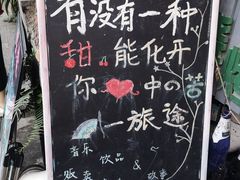 有没有一种
甜.能化开
你❤中の苦
一旅途
音乐 饮品
贩卖 & 故事